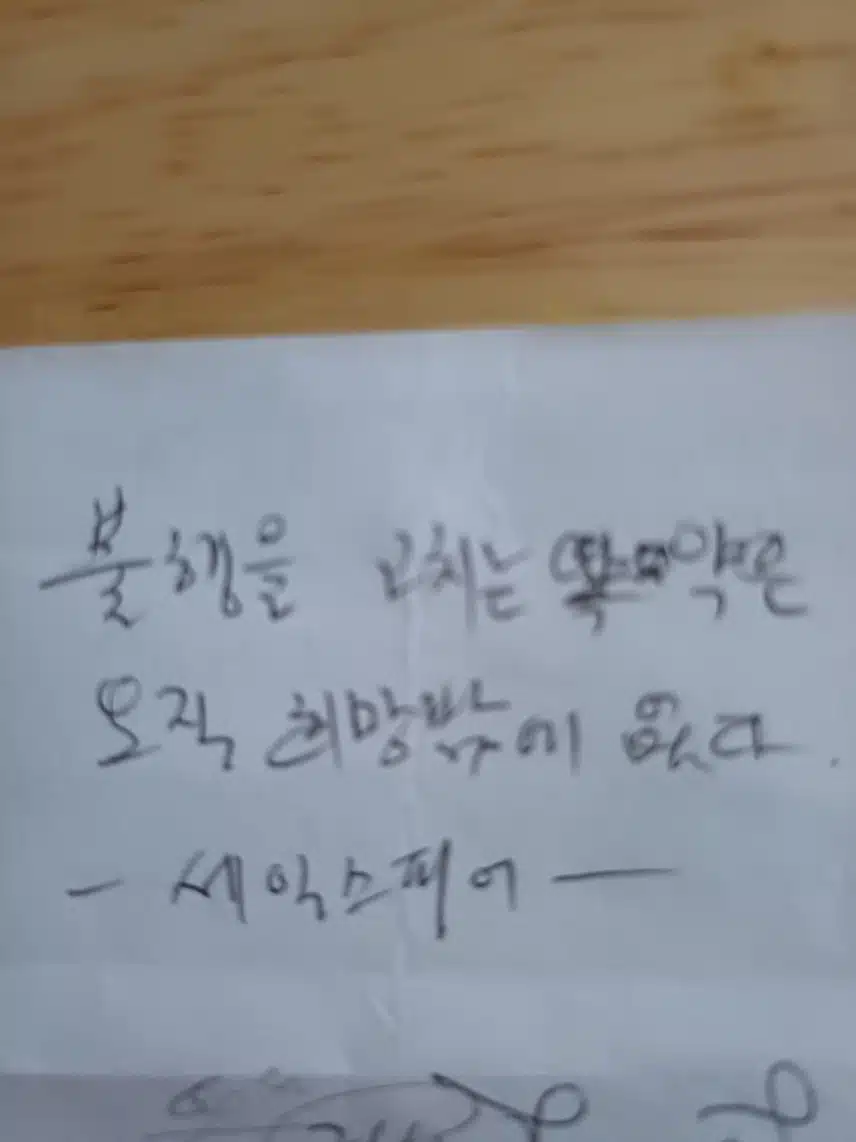 불행을 고치는 약은
오직 희망밖에 없다.
- 세익스피어 -